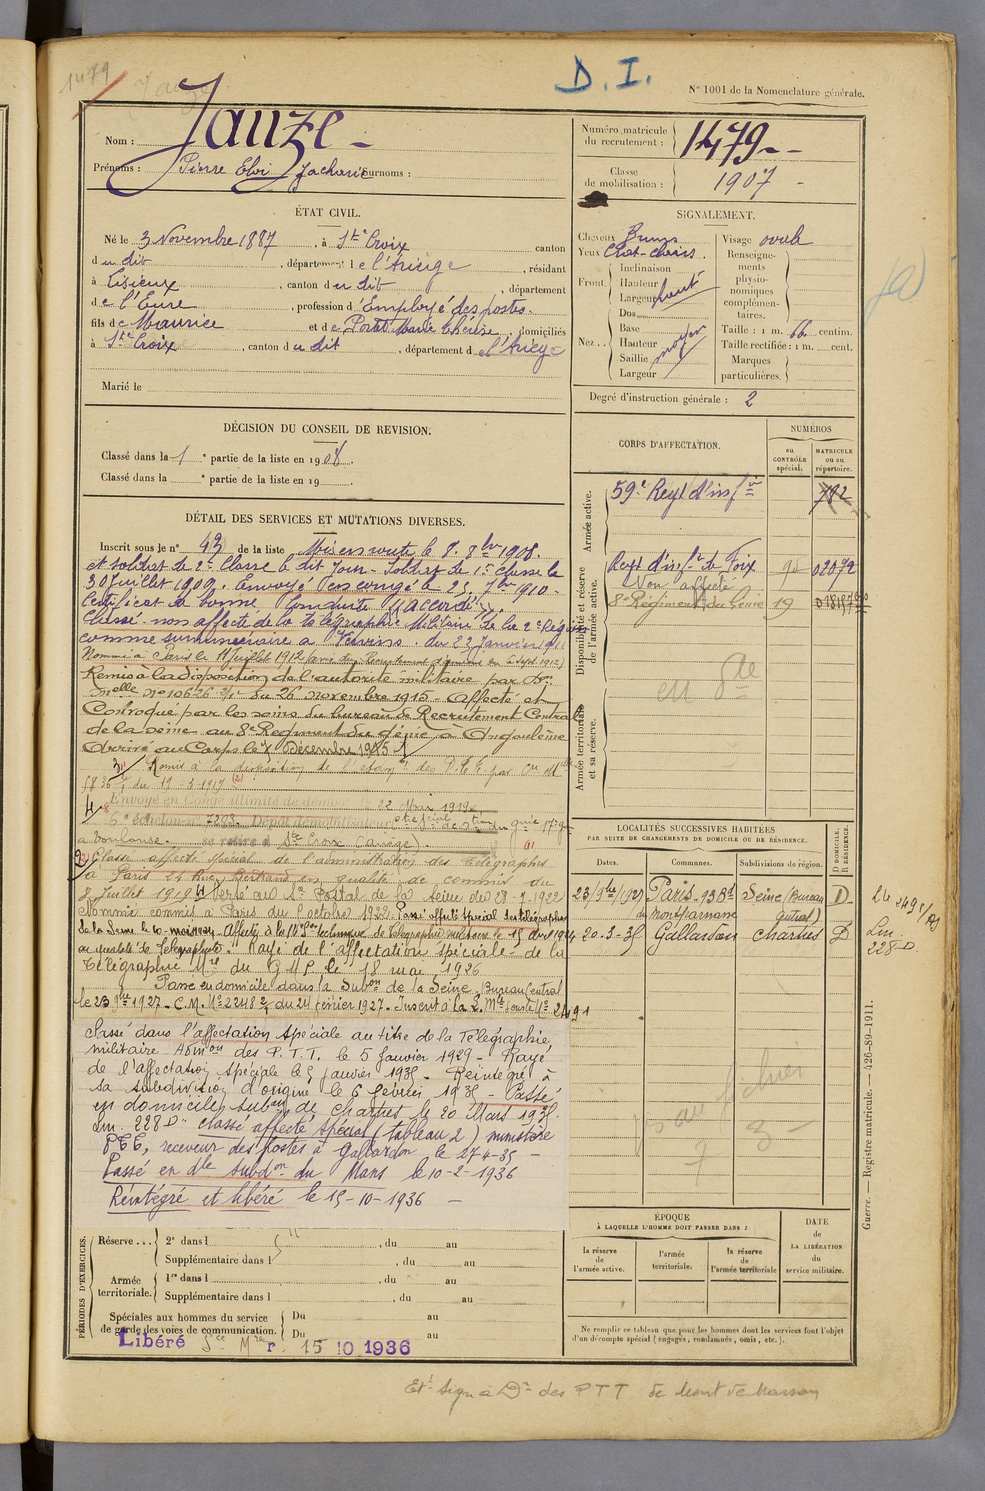 1479
D. I.
N° 1001 de la Nomenclature générale.
Nom : Jauze
Prénoms : Pierre Eloi Zacharie Surnoms :
Numéro matricule du recrutement : 1479
Classe de mobilisation : 1907
ÉTAT CIVIL.
Né le 3 Novembre 1887, à Ste Croix canton
du dit, département de l'Ariège, résidant
à Lisieux, canton du dit, département
de l'Eure, profession d'Employé des postes.
fils de Maurice et de Portet Marie Thérèse, domiciliés
à Ste Croix, canton du dit, département de l'Ariège
Marié le
SIGNALEMENT.
Cheveux Bruns
Yeux Chat-clairs.
Front. Inclinaison
Hauteur
Largeur haut
Nez.. Dos
Base
Hauteur moyen
Saillie
Largeur
Visage ovale
Renseignements physionomiques complémentaires.
Taille : 1 m. 66 centim.
Taille rectifiée : 1 m. cent.
Marques particulières.
Degré d'instruction générale : 2
(a)
DÉCISION DU CONSEIL DE REVISION.
Classé dans la 1 e partie de la liste en 1908.
Classé dans la e partie de la liste en 19
CORPS D'AFFECTATION.
NUMÉROS
au CONTRÔLE spécial.
MATRICULE ou au répertoire.
Armée active.
59e Regt d'infie 782
Disponibilité et réserve de l'armée active.
Regt d'infie de Foix 02072
Non affecté
8e Régiment du Génie 19
Armée territoriale et sa réserve.
DÉTAIL DES SERVICES ET MUTATIONS DIVERSES.
Inscrit sous le n° 43 de la liste Mis en route le 8. 8bre 1908.
et soldat de 2e Classe le dit jour - Soldat de 1e Classe le
30 Juillet 1909. Envoyé en congé le 25 7bre 1910 -
Certificat de bonne Conduite "Accordé".
Classé non affecté de la télégraphie Militaire de la 2e Région
comme surnuméraire à Vervins. du 22 Janvier 1911
Nommé à Paris le 11 Juillet 1912
Remis à la disposition de l'autorité militaire par Dn
melle n° 10626 du 26 novembre 1915 - Affecté et
Convoqué par les soins du bureau de Recrutement Central
de la Seine au 8e Régiment du Génie à Angoulême
Arrivé au Corps le Décembre 1915
Remis à la disposition de l'etan des P.T.T. par Cn Mlle
du 19-3-1917 (2)
Envoyé en Congé illimité de démob le 22 Mai 1919
6e échelon n° 7283 Dépôt démobilisateur
à Toulouse. se retire à Ste Croix (Ariège).
Classé affecté spécial de l'administration des télégraphes
à Paris 24 Rue Bertrand en qualité de commis du
8 Juillet 1919
Nommé commis à Paris du 1 octobre 1922. Passé affecté spécial des télégraphes
de la Seine
Rayé de l'affectation spéciale de la
Télégraphie Mre du G.M.P. le 18 mai 1926
Passe en domicile dans la Subon de la Seine Bureau Central
le 23 9bre 1927 - C.M. N° 2248 du 24 février 1927.
2491
Classé dans l'affectation Spéciale au titre de la Télégraphie
militaire Admon des P.T.T. le 5 Janvier 1929 - Rayé
de l'affectation spéciale le 5 janvier 1935 - Réintégré à
sa subdivision d'origine le 6 février 1935 - Passé
en domicile, subon de Chartres le 20 Mars 1935.
Lm. 228 D" classé affecté spécial (tableau 2) ministère
PTT, receveur des postes à Gallardon le 27-4-35 -
Passé en dle subdon du Mans le 10-2-1936
Réintégré et libéré le 15-10-1936 -
LOCALITÉS SUCCESSIVES HABITÉES
PAR SUITE DE CHANGEMENTS DE DOMICILE OU DE RÉSIDENCE.
Dates. Communes. Subdivisions de région. D DOMICILE. R RÉSIDENCE.
23/9bre/1927 Paris - 93 Bd du Montparnasse Seine (Bureau Central) D
20-3-35 Gallardon Chartres D
Lm.
228 D
ÉPOQUE
À LAQUELLE L'HOMME DOIT PASSER DANS :
la réserve de l'armée active.
l'armée territoriale.
la réserve de l'armée territoriale
DATE de LA LIBÉRATION du service militaire.
Ne remplir ce tableau que pour les hommes dont les services font l'objet
d'un décompte spécial (engagés, condamnés, omis, etc.).
PÉRIODES D'EXERCICES.
Réserve... 2e dans l , du au
Supplémentaire dans l , du au
Armée territoriale. 1re dans l , du au
Supplémentaire dans l , du au
Spéciales aux hommes du service
de garde des voies de communication. Du au
Du au
Libéré Sce Mre 15 10 1936
Guerre. — Registre matricule. — 426-89-1911.
Ett Sign à Dn des PTT de Mont de Marsan